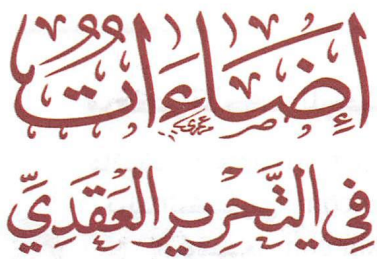 إِضَاءَاتٌ
فِي التَّحْرِيرِ الْعَقَدِيِّ